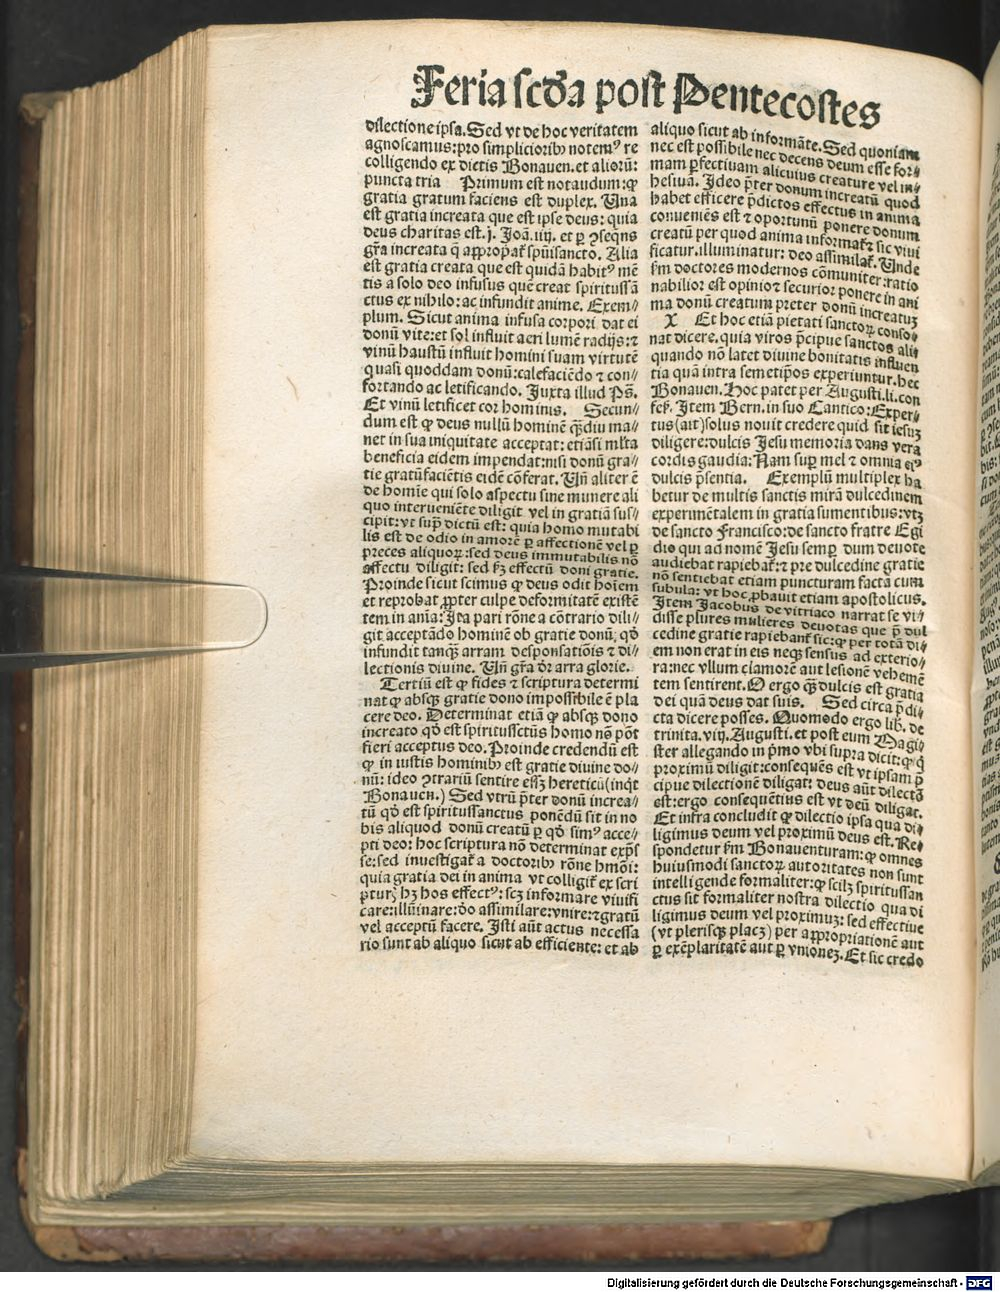 Feria scďa post Pentecostes
dilectione ipsa. Sed vt de hoc veritatem
agnoscamus: pro simpliciorib⁹ notem⁹ re
colligendo ex dictis Bonauen. et aliorū:
puncta tria Primum est notandum: ꝙ
gratia gratum faciens est duplex. Una
est gratia increata que est ipse deus: quia
deus charitas est. j. Joā. iiij. et ꝑ ꝯseqn̄s
gr̄a increata q̄ appropat̄ sp̄uisancto. Alia
est gratia creata que est quidā habit⁹ mē
tis a solo deo infusus quē creat spiritussā
ctus ex nihilo: ac infundit anime. Exem⸗
plum. Sicut anima infusa corpori dat ei
donū vite: et sol influit aeri lumē radijs: ⁊
vinū haustū influit homini suam virtutē
quasi quoddam donū: calefaciēdo ⁊ con⸗
fortando ac letificando. Juxta illud Ps̄.
Et vinū letificet cor hominis. Secun⸗
dum est ꝙ deus nullū hominē qȝdiu ma⸗
net in sua iniquitate acceptat: etiāsi ml̄ta
beneficia eidem impendat: nisi donū gra⸗
tie gratūfaciētis eidē cōferat. Un̄ aliter ē
de homīe qui solo aspectu sine munere ali
quo interueniēte diligit vel in gratiā sus⸗
cipit: vt supra dictū est: quia homo mutabi
lis est de odio in amorē ꝑ affectionē vel ꝑ
preces aliquoꝝ: sed deus immutabilis nō
affectu diligit: sed ẜm effectū doni gratie.
Proinde sicut scimus ꝙ deus odit hoīem
et reprobat ꝓpter culpe deformitatē existē
tem in aīa: Ita pari rōne a cōtrario dili⸗
git acceptādo hominē ob gratie donū, qd̄
infundit tanqȝ arram desponsatiōis ⁊ di⸗
lectionis diuine. Un̄ gr̄a dr̄ arra glorie.
Tertiū est ꝙ fides ⁊ scriptura determi
nat ꝙ absqȝ gratie dono impossibile ē pla
cere deo. Determinat etiā ꝙ absqȝ dono
increato qd̄ est spiritussctūs homo nō pōt
fieri acceptus deo. Proinde credendū est
ꝙ in iustis hominibȝ est gratie diuine do⸗
nū: ideo ꝯtrariū sentire essȝ hereticū (inqt
Bonauen.) Sed vtrū p̄ter donū increa⸗
tū qd̄ est spiritussanctus ponēdū sit in no
bis aliquod donū creatū ꝑ qd̄ sim⁹ acce⸗
pti deo: hoc scriptura nō determinat exp̄s
se: sed inuestigat̄ a doctoribȝ rōne hmōi:
quia gratia dei in anima vt colligit̄ ex scri
pturȝ hȝ hos effect⁹: scȝ informare viuifi
care: illūinare: deo assimilare: vnire: ⁊ gratū
vel acceptū facere. Isti aūt actus necessa
rio sunt ab aliquo sicut ab efficiente: et ab
aliquo sicut ab informāte. Sed quoniam
nec est possibile nec decens deum esse for⸗
mam ꝑfectiuam alicuius creature vel in⸗
hesiuā. Ideo p̄ter donum increatū quod
habet efficere p̄dictos effectus in anima
conueniēs est ⁊ oportunū ponere donum
creatū per quod anima informat̄ ⁊ sic viui
ficatur. illuminatur: deo assimilat̄. Unde
ẜm doctores modernos cōmuniter: ratio
nabilior est opinio ⁊ securior ponere in ani
ma donū creatum preter donū increatuȝ
X Et hoc etiā pietati sanctoꝝ conso⸗
nat dicere. quia viros p̄cipue sanctos ali⸗
quando nō latet diuine bonitatis influen
tia quā intra semetip̄os experiuntur. hec
Bonauen. Hoc patet per Augusti. li. con
fes̄. Item Bern. in suo Cantico: Exper⸗
tus (ait) solus nouit credere quid sit iesuȝ
diligere: dulcis Jesu memoria dans vera
cordis gaudia: Nam suꝑ mel ⁊ omnia ei⁹
dulcis p̄sentia. Exemplū multiplex ha
betur de multis sanctis mirā dulcedinem
experimētalem in gratia sumentibus: vtȝ
de sancto Francisco: de sancto fratre Egi
dio qui ad nomē Jesu semꝑ dum deuote
audiebat rapiebat̄: ⁊ pre dulcedine gratie
nō sentiebat etiam puncturam facta cum
subula: vt hoc ꝓbauit etiam apostolicus.
Item Jacobus de vitriaco narrat se vi⸗
disse plures mulieres deuotas que p̄ dul
cedine gratie rapiebant̄ sic: ꝙ per totā di⸗
em non erat in eis neqȝ sensus ad exterio⸗
ra: nec vllum clamorē aut lesionē vehemē
tem sentirent. O ergo qȝ dulcis est gratia
dei quā deus dat suis. Sed circa p̄di⸗
cta dicere posses. Quomodo ergo lib. de
trinita. viij. Augusti. et post eum Magi⸗
ster allegando in p̄mo vbi supra dicit: ꝙ q̄
proximū diligit: consequēs est vt ipsam p̄
cipue dilectionē diligat: deus aūt dilectō
est: ergo consequētius est vt deū diligat.
Et infra concludit ꝙ dilectio ipsa qua di⸗
ligimus deum vel proximū deus est. Re⸗
spondetur ẜm Bonauenturam: ꝙ omnes
huiusmodi sanctoꝝ autoritates non sunt
intelligende formaliter: ꝙ scilȝ spiritussan
ctus sit formaliter nostra dilectio qua di
ligimus deum vel proximuȝ: sed effectiue
(vt plerisqȝ placȝ) per appropriationē aut
ꝑ exēplaritatē aut ꝑ vnioneȝ. Et sic credo
Digitalisierung gefördert durch die Deutsche Forschungsgemeinschaft - DFG